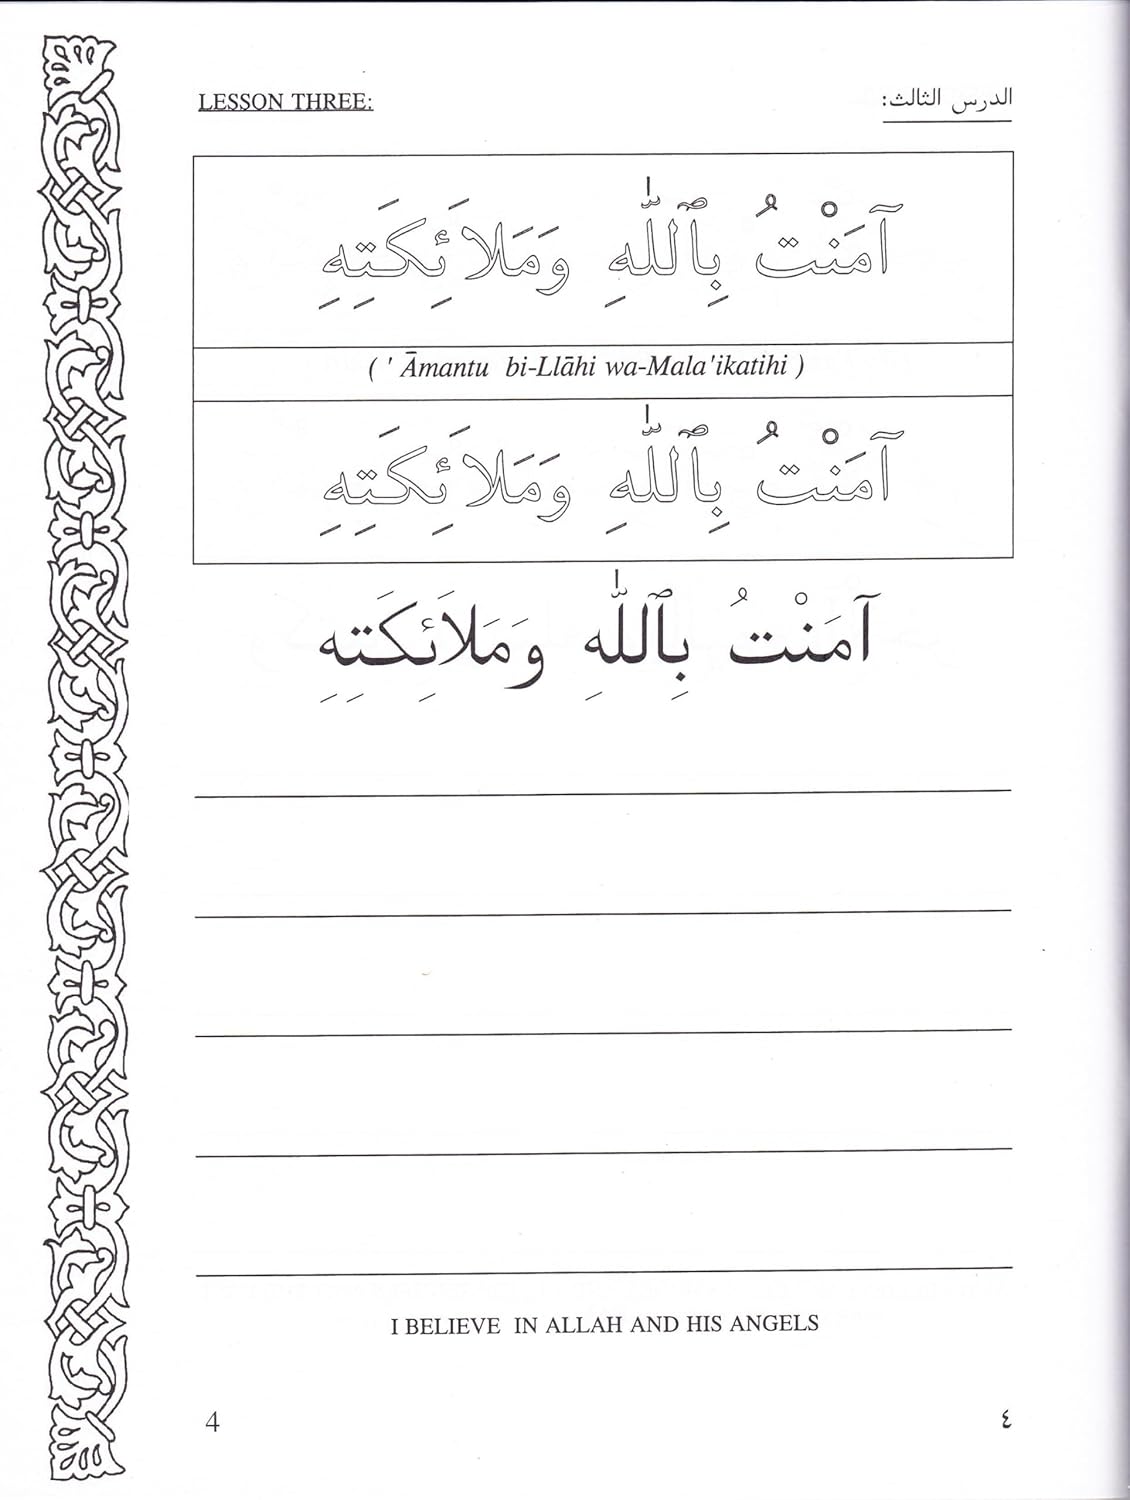 LESSON THREE: الدرس الثالث:
آمَنْتُ بِٱللّٰهِ وَمَلَائِكَتِهِ
( ' Āmantu bi-Llāhi wa-Mala'ikatihi )
آمَنْتُ بِٱللّٰهِ وَمَلَائِكَتِهِ
آمَنْتُ بِٱللّٰهِ وَمَلَائِكَتِهِ
I BELIEVE IN ALLAH AND HIS ANGELS
4 ٤